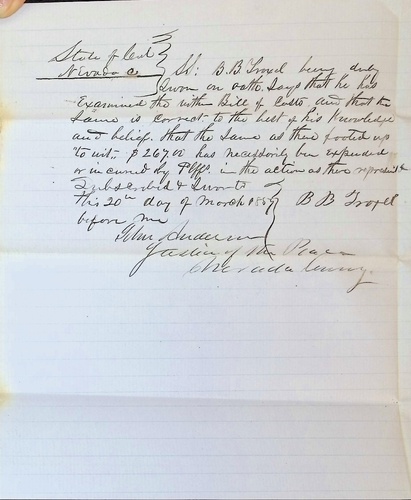 State of Cal
Nevada Co } SS: B. B. Troxel being duly
Sworn on oath Says that he has
Examined the within Bill of Costs and that the
Same is correct to the best of his Knowledge
and belief. that the same as then footed up
"to wit," $267.00 has necessarily been expended
or incured by Plffs. in the action as then represented
Subscribed & Sworn to
this 20th day of March B B Troxel
before me
John Anderson
Justice of the Peace
Nevada County.